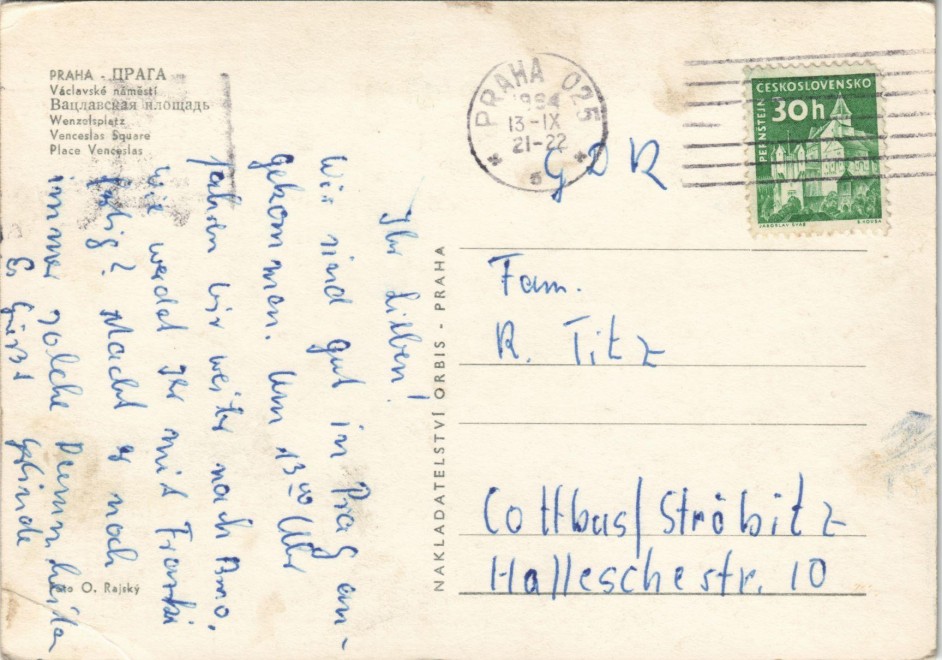 PRAHA - ПРАГА
Václavské náměstí
Вацлавская площадь
Wenzelsplatz
Venceslas Square
Place Venceslas
Ihr Lieben!
Wir sind gut in Prag an-
gekommen. Um 13⁰⁰ Uhr
fahren wir weiter nach Brno.
Wie werdet Ihr mit Franki
fertig? Macht er noch
immer solche Dummheiten
Es grüßt
Foto O. Rajský
NAKLADATELSTVÍ ORBIS - PRAHA
PRAHA 025
13-IX
21-22
5
ČESKOSLOVENSKO
30h
PERNŠTEJN
JAROSLAV ŠVÁB
GDR
Fam.
R. Titz
Cottbus/Ströbitz
Halleschestr. 10